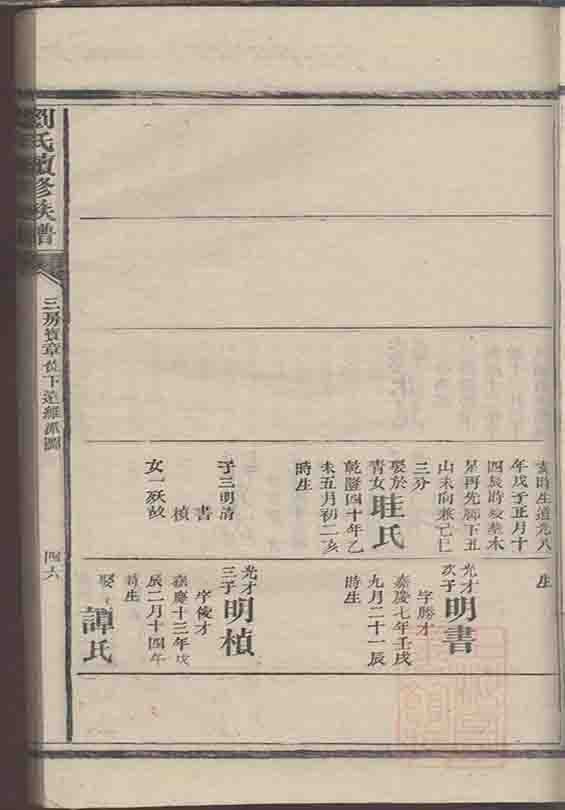 劉氏續修族譜
三房賓章位下達
四六
亥時生道光八
年戊子正月十
四辰時歿葬木
星再先腳下丑
山未向兼己巳
三分
娶於
青女眭氏
乾隆四十年乙
未五月初二亥
時生
子三明清
書
楨
女一歿故
生
光才
次子明書
字勝才
嘉慶七年壬戌
九月二十一辰
時生
光才
三子明楨
字俊才
嘉慶十三年戊
辰二月十四午
時生
娶
譚氏